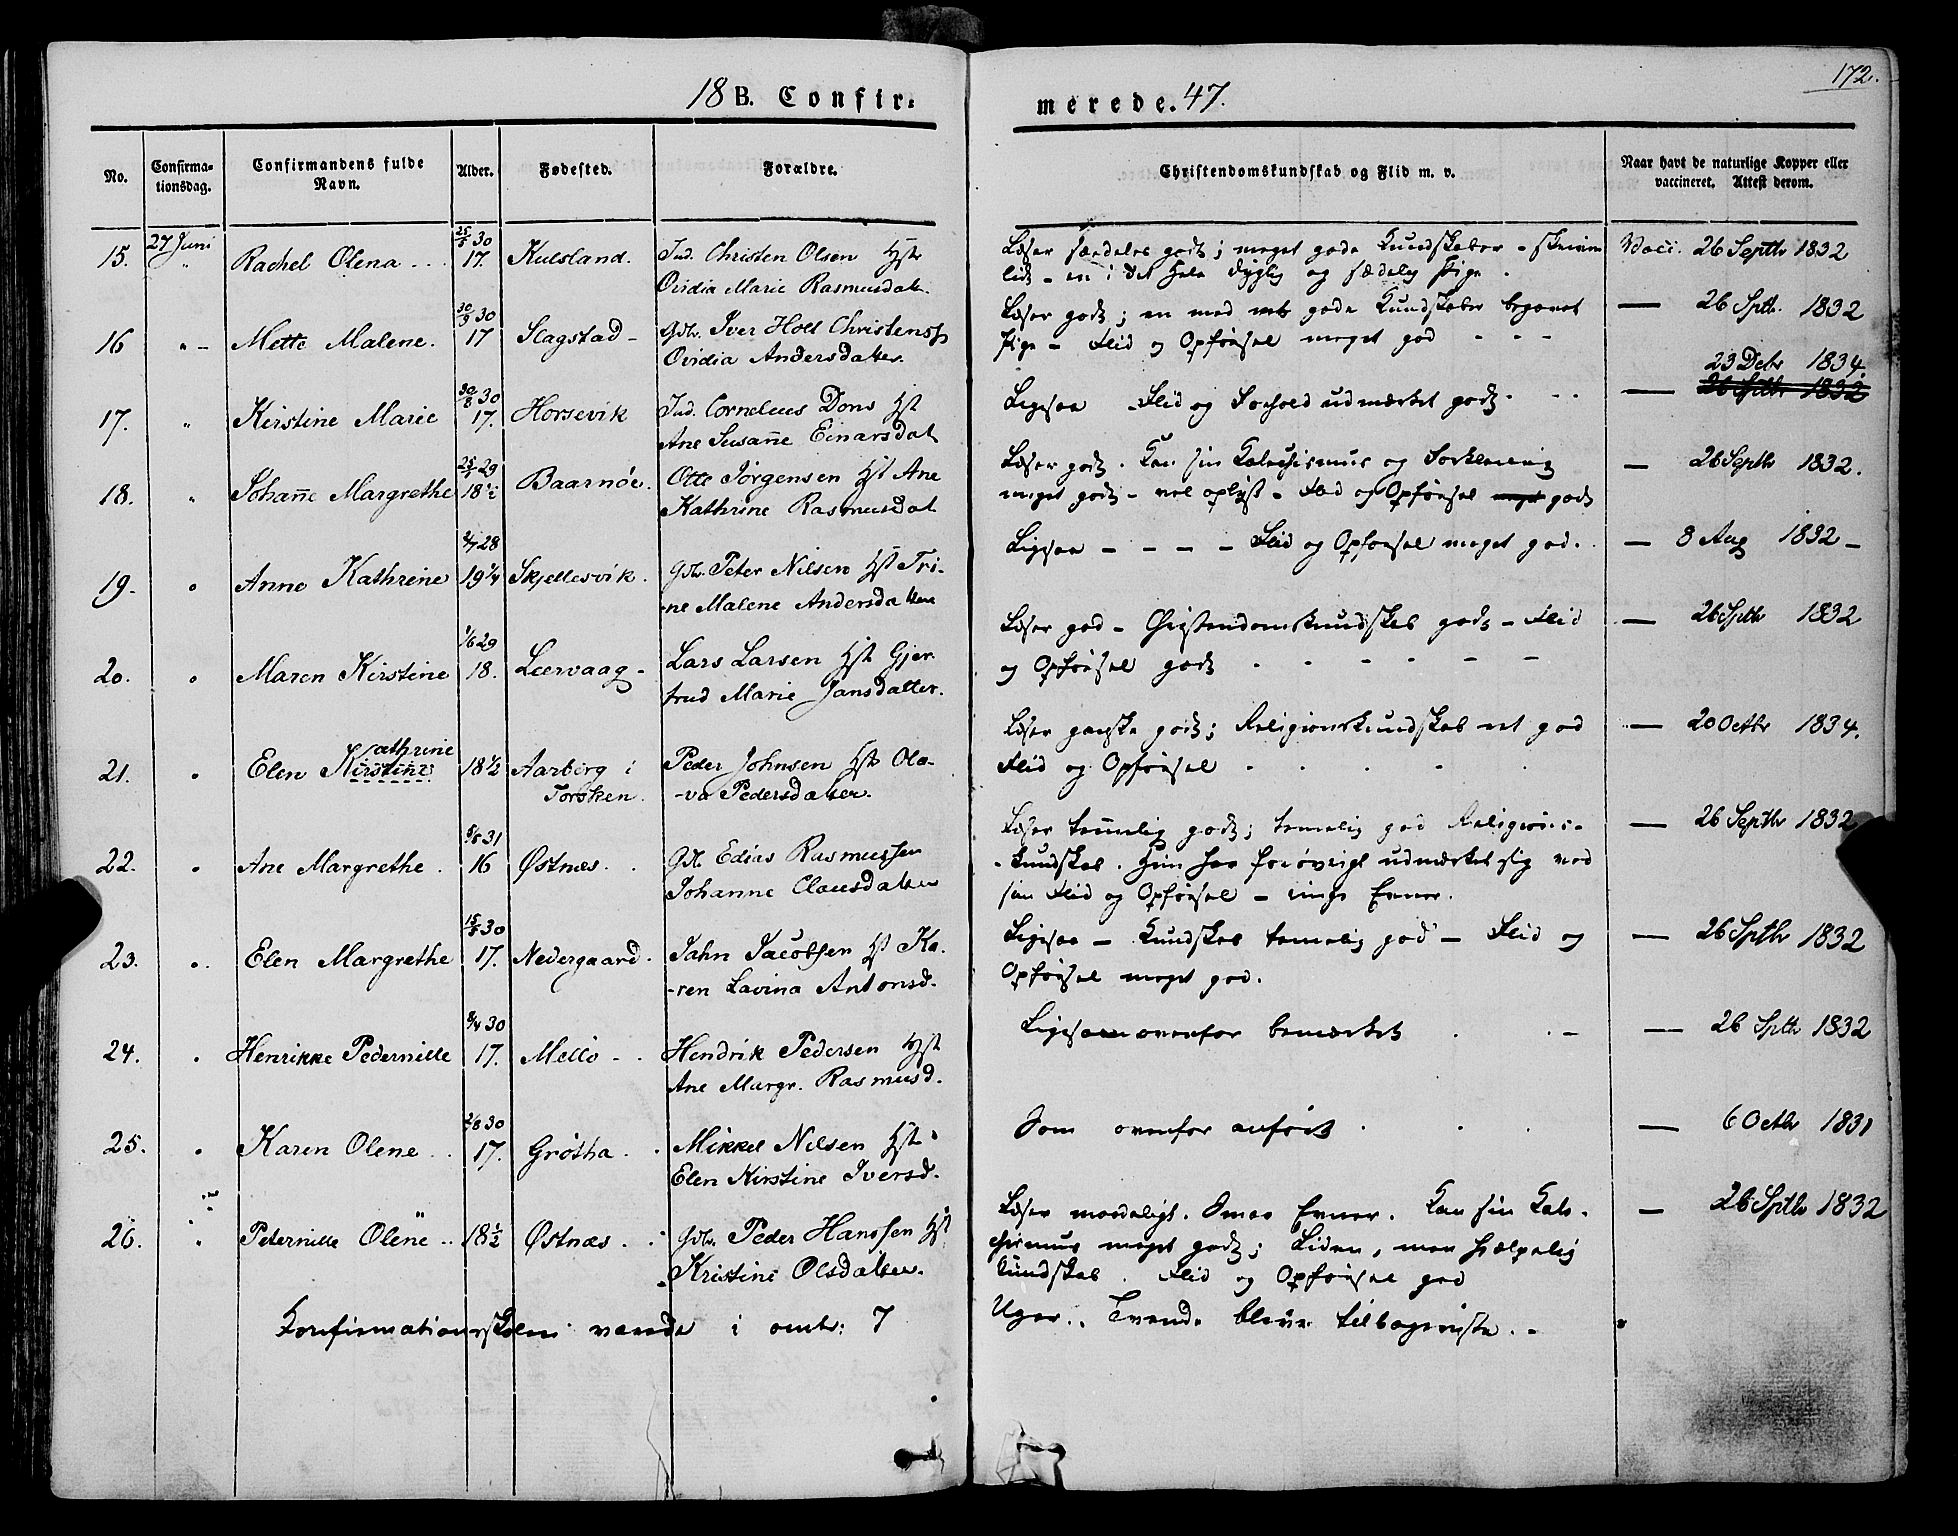 172.
18 B. Confirmerede. 47.
No. Confirmationsdag. Confirmandens fulde Navn. Alder. Fødested. Forældre. Christendomskundskab og Flid m. v. Naar havt de naturlige Kopper eller vaccineret. Attest derom.
15. 27 Juni Rachel Olena 30 17. Kulsland. Ind. Christen Olsen Hst
Ovidia Marie Rasmusdatr.
Læser særdeles godt; meget gode Kundskaber
en i det Hele dygtig og sædelig Pige.
Vacc. 26 Septbr 1832
16 Mette Malene. 30/9 30 17 Slagstad Gdbr. Iver Holl Christenss
Ovidia Andersdatter.
Læser godt; en med gode Kundskaber begavet
Pige - Flid og Opførsel meget god
— 26 Sptbr. 1832
17. " Kirstine Marie 30/8 30 17. Horsevik Ind. Cornelius Dons Hst
Ane Susañe Einarsdat
Ligesaa Flid og Forhold udmærket godt.
— 23 Debr 1834.
26 Sptbr 1832
18. " Johañe Margrethe 29 18½ Baarnøe. Otte Jørgensen Hst Ane
Kathrine Rasmusdat
Læser godt. Kan sin Catechismus og Forklaring
meget godt - vel oplyst - Flid og Opførsel meget godt
— 26 Septbr 1832.
19. " Anne Kathrine 28 19¼ Skjellesvik. Gdbr. Peter Nilsen Hst Tri-
-ne Malene Andersdatter
Ligesaa - - - - Flid og Opførsel meget god.
— 8 Aug 1832 -
20. " Maren Kirstine 1/6 29 18. Leervaag - Lars Larsen Hst Gjer-
trud Marie Jansdatter.
Læser god - Christendomskundskab godt - Flid
og Opførsel godt
— 26 Sptbr 1832
21. " Elen Kirstine Kathrine 18½ Aarberg i
Torsken. Peder Johnsen Hst Ola-
-va Pedersdatter.
Læser ganske godt; Religionskundskab ret god
Flid og Opførsel
— 20 Octbr 1834.
22. " Ane Margrethe. 31 16 Østnæs. Gdb Edias Rasmussen
Johanne Clausdatter
Læser temmelig godt; temelig god Religions-
-kundskab. Hun har forøvrigt udmærket sig ved
sin Flid og Opførsel - ringe Evner.
— 26 Septbr 1832
23. " Elen Margrethe 30 17. Nedergaard. Jahn Jacobsen Hst Ka-
-ren Lavina Antonsd.
Ligesaa - Kundskab temelig god - Flid og
Opførsel meget god.
— 26 Sptbr 1832
24. " Henrikke Pedernille 30 17. Mello - Hendrik Pedersen Hst
Ane Margr. Rasmusd.
Ligesom ovenfor bemærket
— 26 Sptbr 1832
25. " Karen Olene 30 17. Grøtha. Mikkel Nilsen Hst
Elen Kirstine Iversd.
Som ovenfor anført
— 6 Octbr 1831
26. " Peternille Olene 18½ Østnæs. Gdbr. Peder Hanssen Hst
Kristine Olsdatter.
Læser maadeligt. Smaa Evner. Kan sin Kate-
chismus meget godt; Liden, men hjælpelig
Kundskab. Flid og Opførsel god
— 26 Sptbr 1832
Konfirmationsskolen varede i omtr: 7 Uger. Tvende bleve tilbageviste.